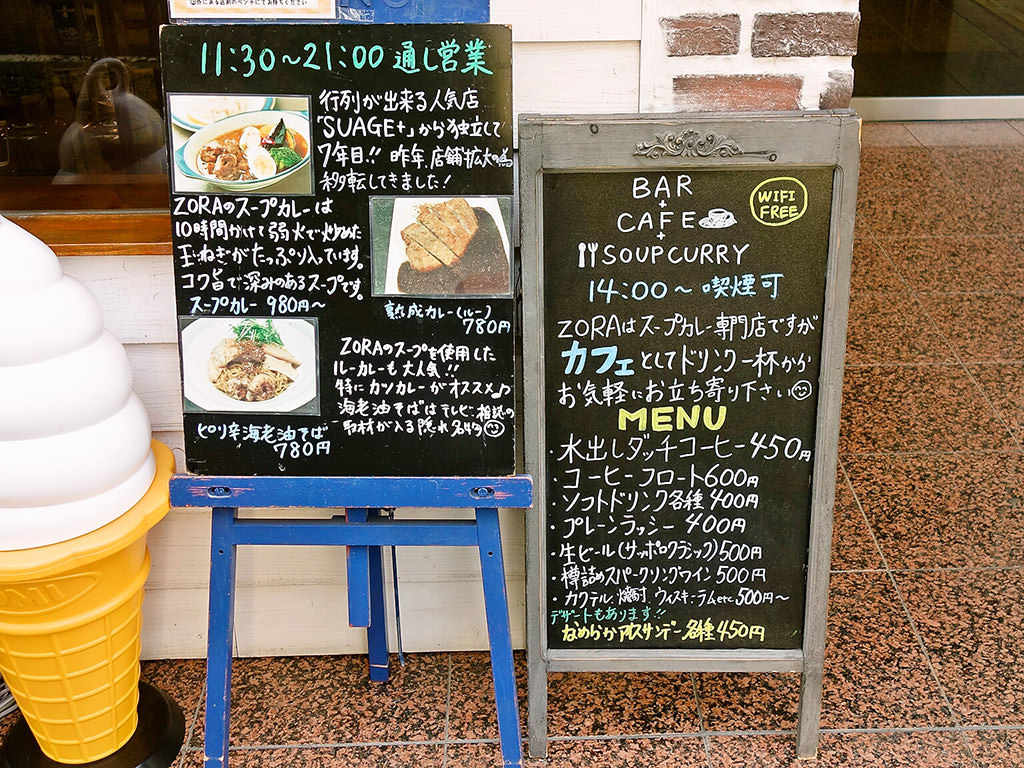 11:30～21:00 通し営業
行列が出来る人気店
「SUAGE+」から独立して
7年目!! 昨年、店舗拡大の為
移転してきました!
ZORAのスープカレーは
10時間かけて弱火で炒めた
玉ねぎがたっぷり入っています。
コク旨で深みのあるスープです。
スープカレー 980円～
熟成カレー(ルー)
780円
ZORAのスープを使用した
ルーカレーも大人気!!
特にカツカレーがオススメ♪
海老油そばはテレビ、雑誌の
取材が入る隠れ名物
ピリ辛海老油そば
780円
BAR
+
CAFE
+
SOUPCURRY
WIFI
FREE
14:00～ 喫煙可
ZORAはスープカレー専門店ですが
カフェとしてドリンク一杯から
お気軽にお立ち寄り下さい
MENU
・水出しダッチコーヒー 450円
・コーヒーフロート 600円
・ソフトドリンク各種 400円
・プレーンラッシー 400円
・生ビール(サッポロクラシック) 500円
・樽詰めスパークリングワイン 500円
・カクテル、焼酎、ウィスキー、ラム etc 500円～
デザートもあります!!
なめらかアイスサンデー各種 450円